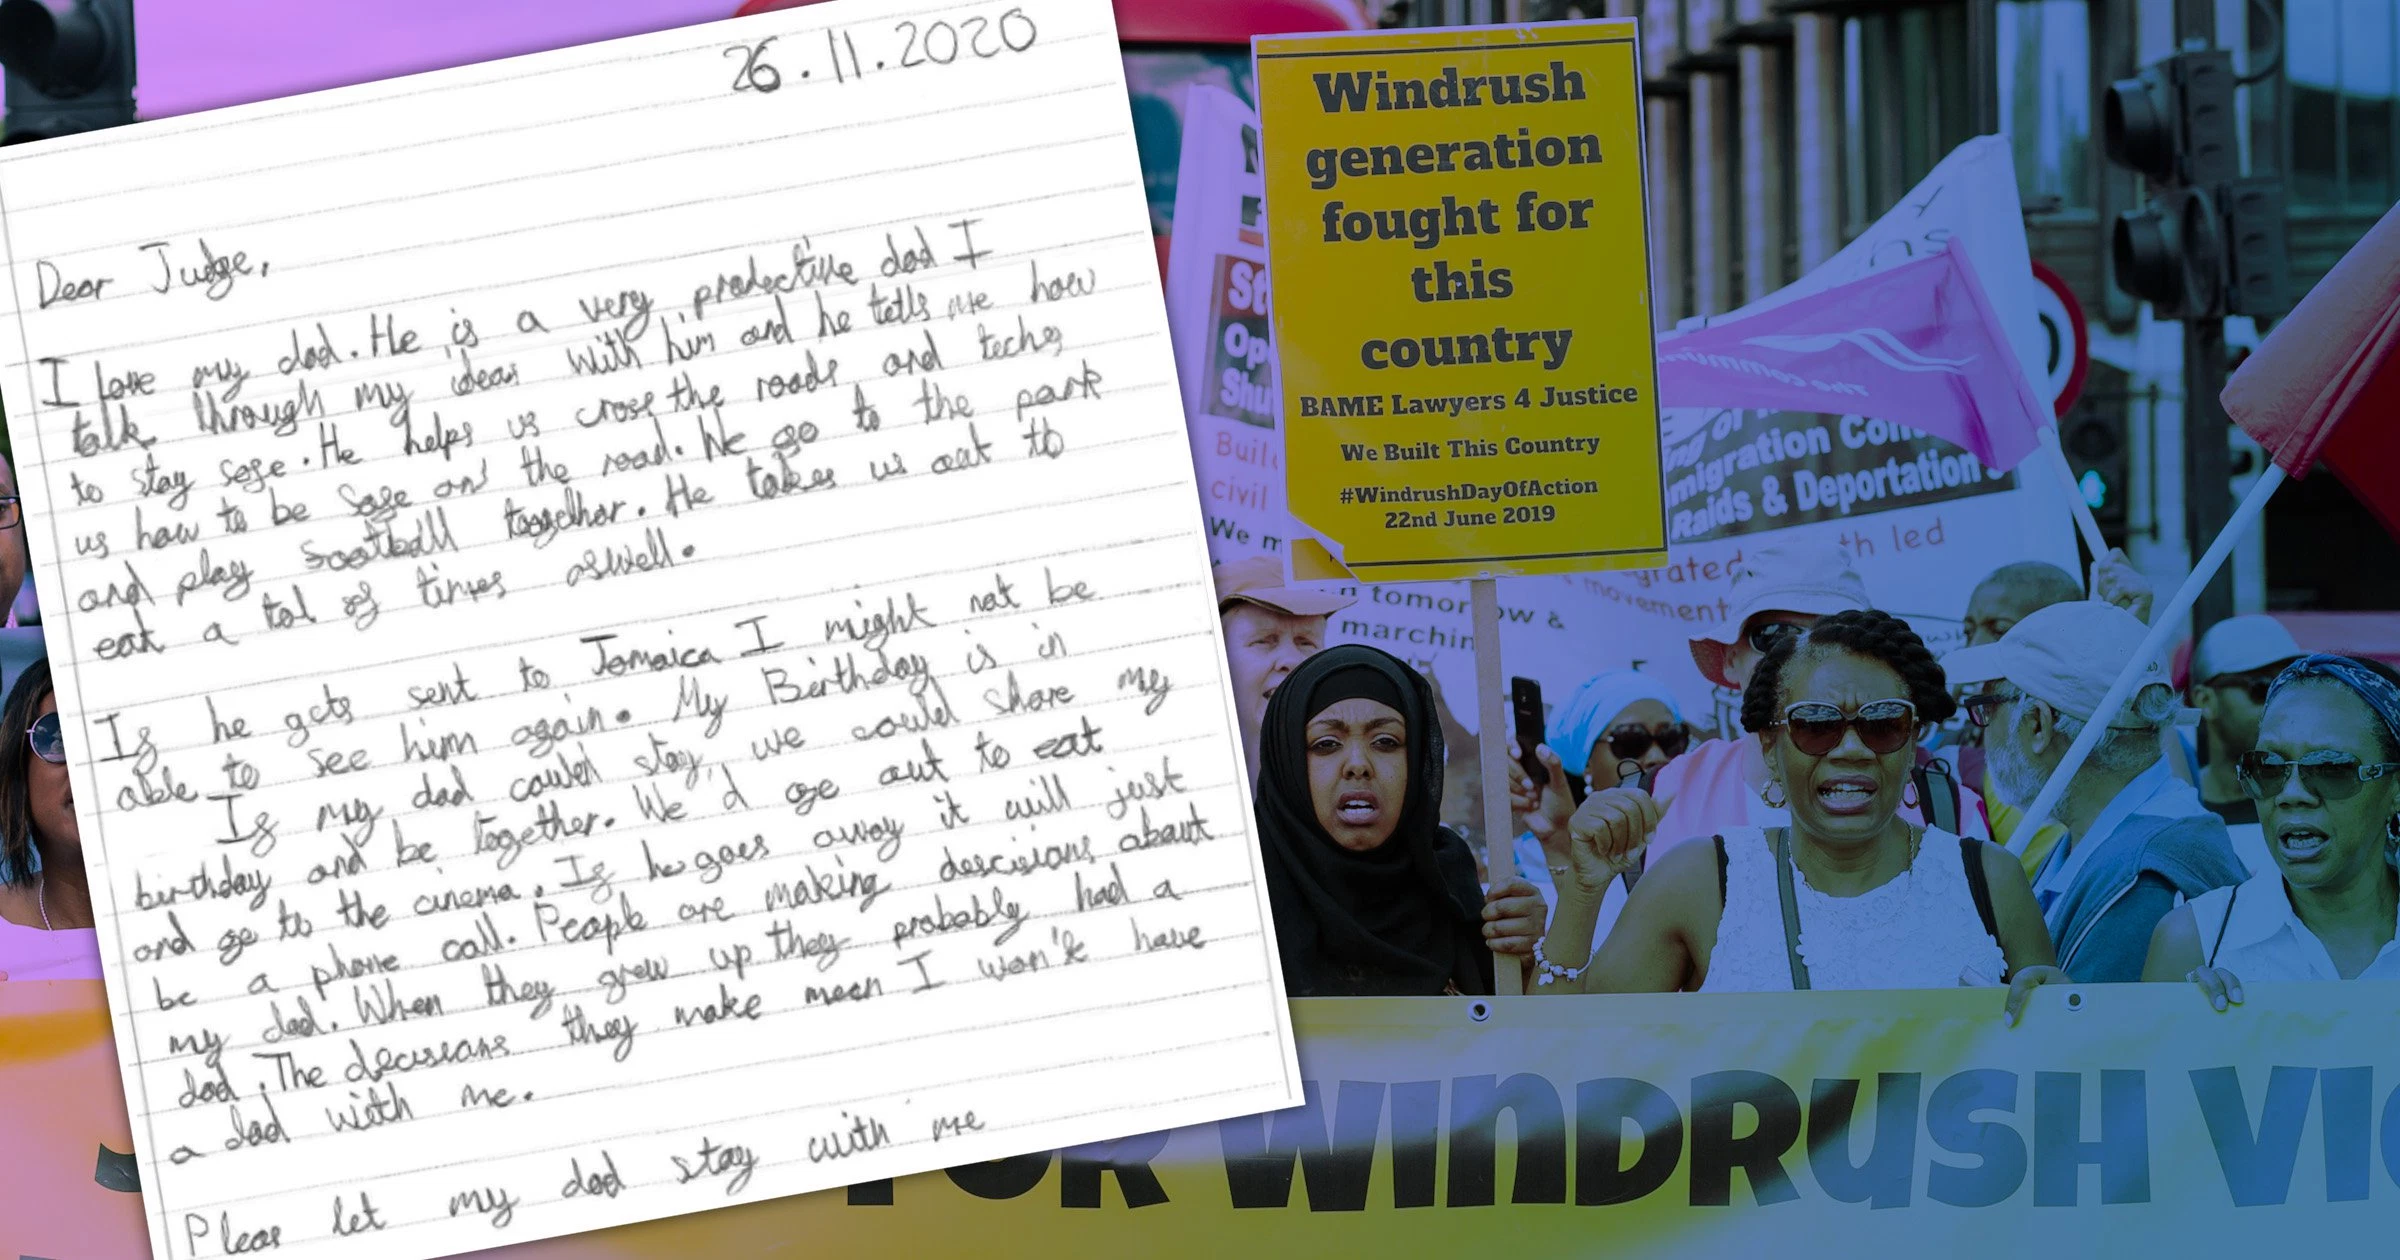 26.11.2020
Dear Judge,
I love my dad. He is a very protective dad I
talk through my ideas with him and he tells me how
to stay safe. He helps us cross the roads and techs
us how to be safe on the road. We go to the park
and play football together. He takes us out to
eat a tol of times aswell.
If he gets sent to Jamaica I might not be
able to see him again. My Birthday is in
If my dad could stay, we could share my
birthday and be together. We'd go out to eat
and go to the cinema. If he goes away it will just
be a phone call. People are making descisions about
my dad. When they grew up they probably had a
dad. The decisions they make mean I won't have
a dad with me.
Pleas let my dad stay with me
Windrush
generation
fought for
this
country
BAME Lawyers 4 Justice
We Built This Country
#WindrushDayOfAction
22nd June 2019
St
Op
Shu
Buil
civil
We m
of
migration Con
Raids & Deportations
th led
grated
movement
n tomorrow &
marchin
FOR WINDRUSH VIC